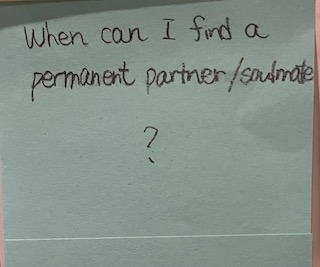 When can I find a
permanent partner/soulmate
?